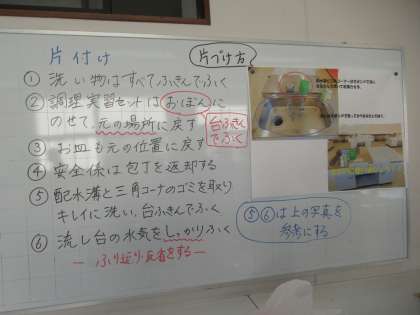 片付け
片づけ方
① 洗い物はすべてふきんでふく
② 調理実習セットはおぼんに
のせて、元の場所に戻す
台ふきん
でふく
③ お皿も元の位置に戻す
④ 安全係は包丁を返却する
⑤ 配水溝と三角コーナのゴミを取り
キレイに洗い、台ふきんでふく
⑥ 流し台の水気をしっかりふく
ー ふり返り・反省をする ー
⑤⑥は上の写真を
参考にする